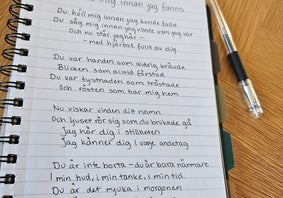 mig innan jag fanns
Du höll mig innan jag kunde falla
Du såg mig innan jag visste vem jag var
Och nu står jag här –
– med hjärtat fullt av dig.
Du var handen som aldrig krävde
Blicken som alltid förstod
Du var tystnaden som tröstade
Och rösten som bar mig hem
Nu viskar vinden ditt namn
Och ljuset rör sig som du brukade gå
Jag hör dig i stillheten
Jag känner dig i varje andetag
Du är inte borta – du är bara närmare
I min hud, i min tanke, i min tid.
Du är det mjuka i morgonen